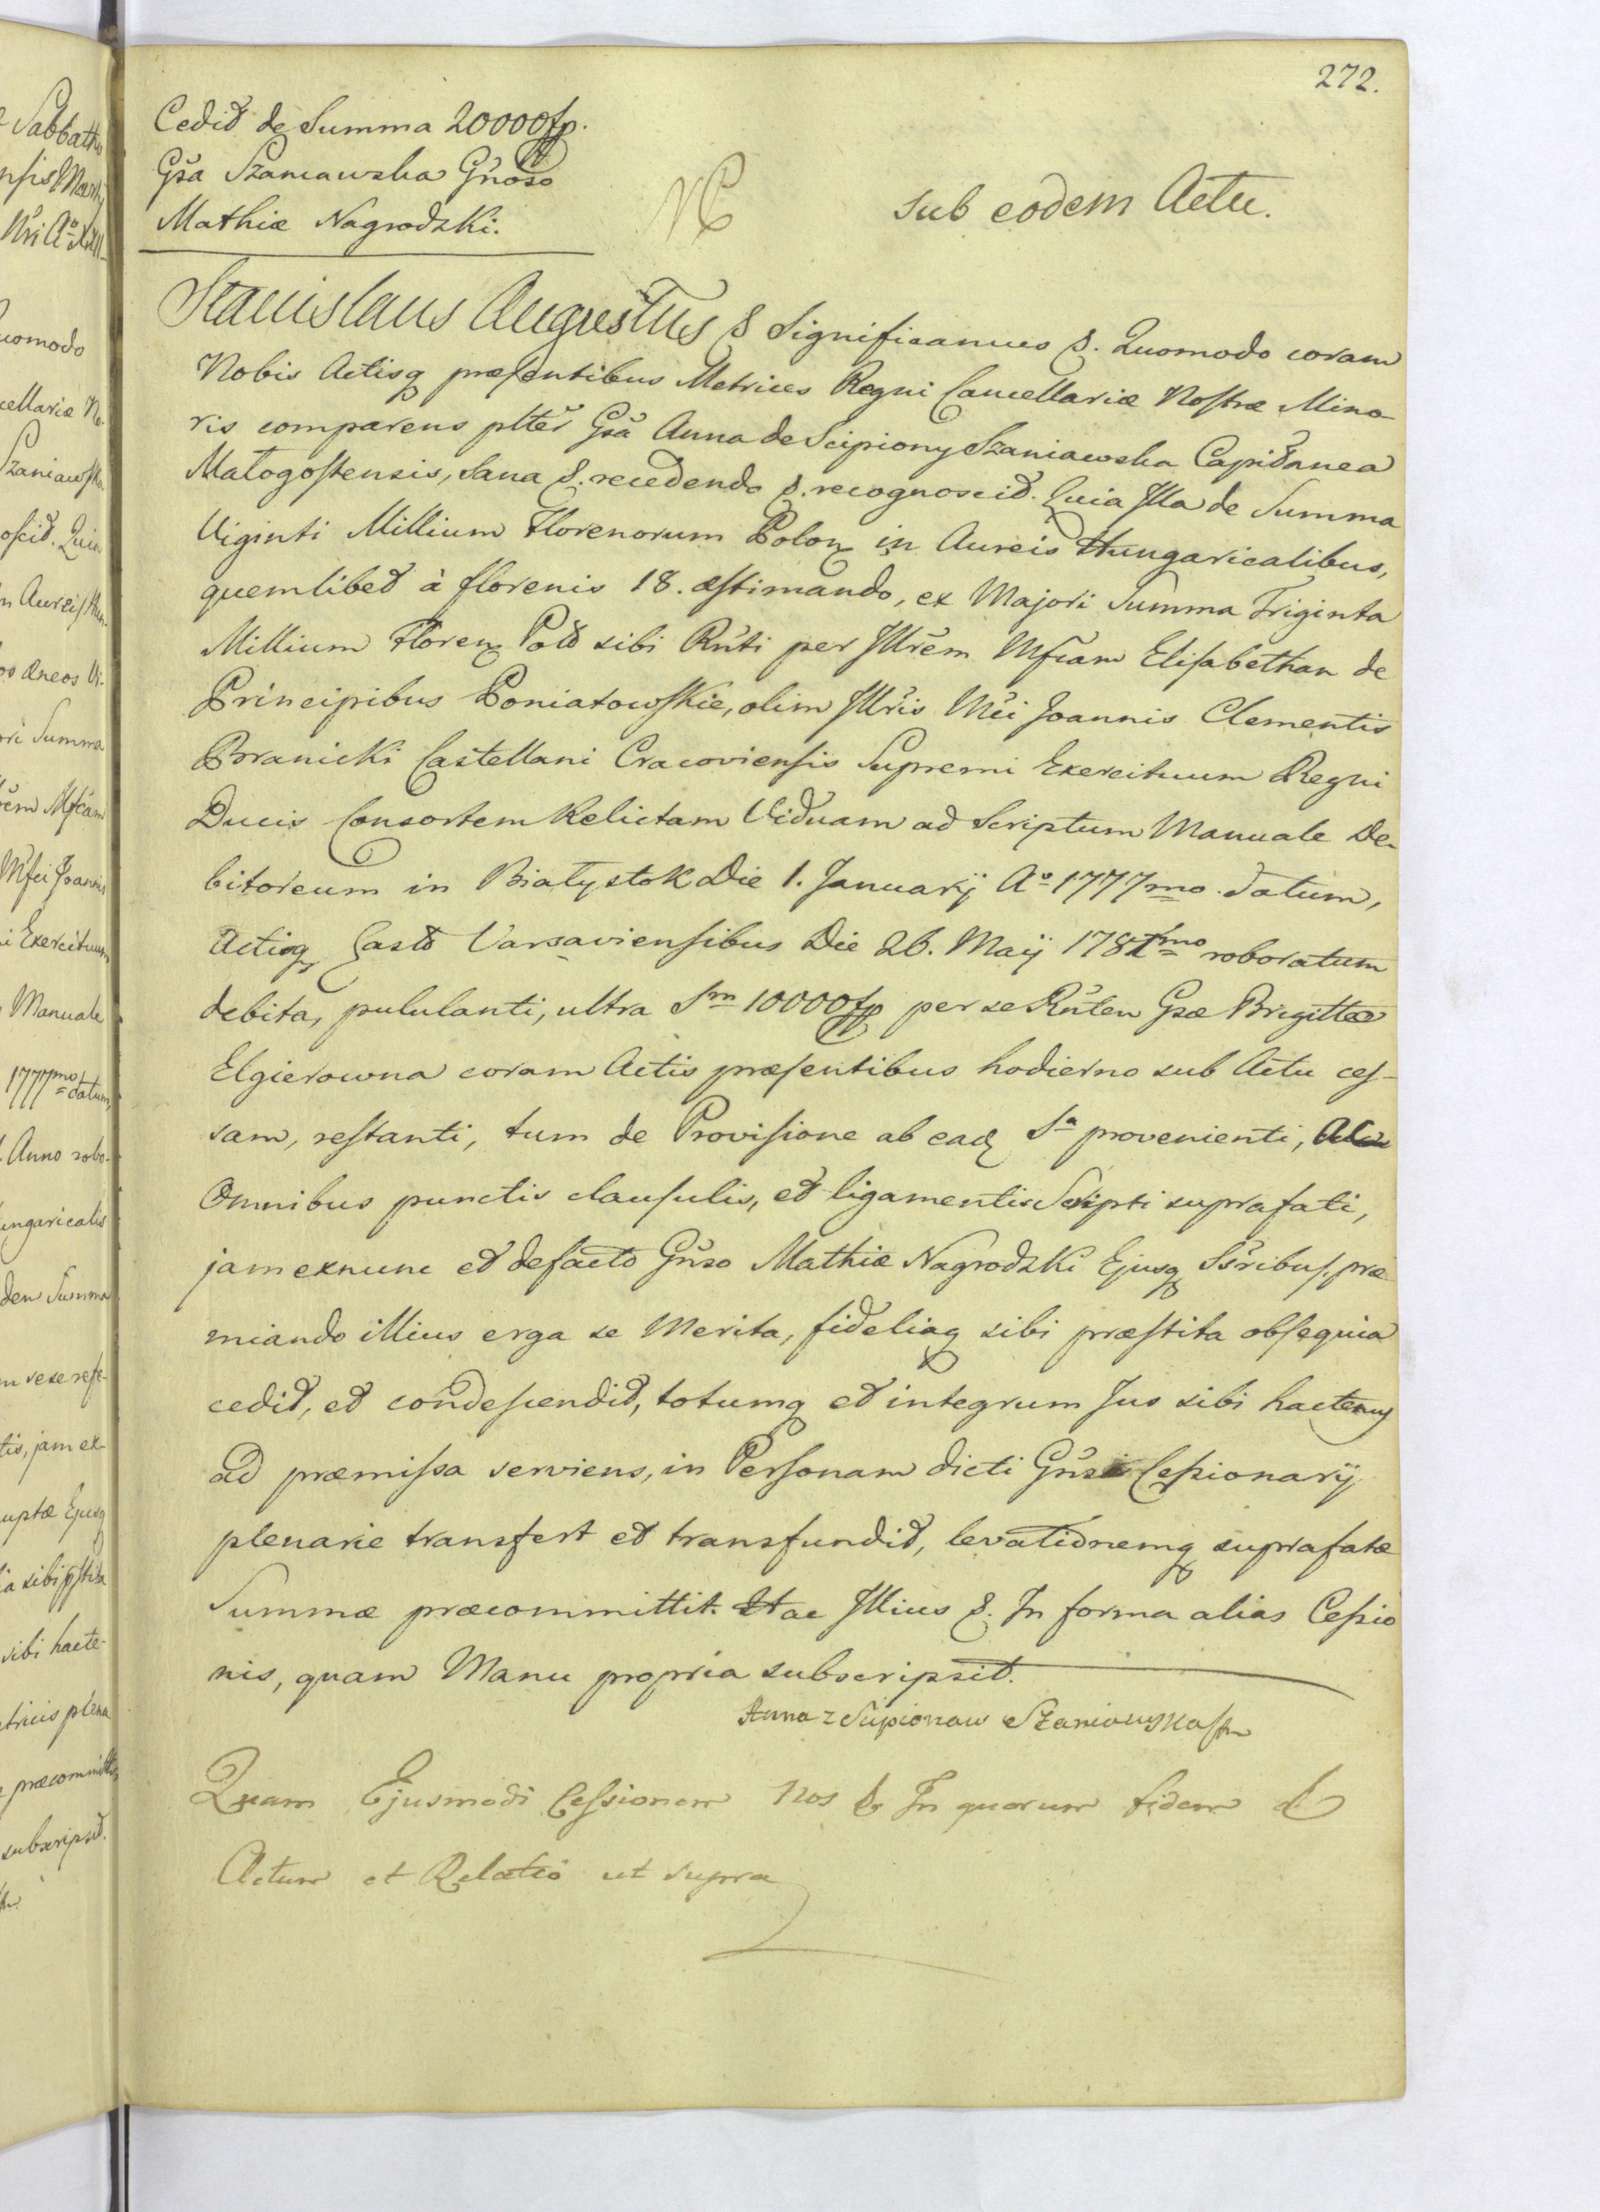 272.
Cedit de Summa 20000 fp.
Gsa Szaniawska Gnoso
Mathiæ Nagrodzki.
Sub eodem Actu.
Stanislaus Augustus & Significamus &. Quomodo coram
Nobis Actisq præsentibus Metrices Regni Cancellariæ Nostræ Mino-
ris comparens plter Gsa Anna de Scipiony Szaniawska Capitanea
Małogostensis, Sana &. recedendo &. recognoscit. Quia Illa de Summa
Viginti Millium Florenorum Polon in Aureis Hungaricalibus,
quemlibet à florenis 18. æstimando, ex Majori Summa Triginta
Millium Floren Pold sibi Rnti per Illrem Mficam Elisabetham de
Principibus Poniatowskie, olim Illris Mfci Joannis Clementis
Branicki Castellani Cracoviensis Supremi Exercituum Regni
Ducis Consortem Relictam Viduam ad Scriptum Manuale De-
bitoreum in Białystok Die 1. Januarij Ao 1777mo datum,
Actisq Castr Varsaviensibus Die 26. Maij 1781mo roboratum
debita, pululanti, ultra Sm 10000 fp per se Rnten Gsæ Brigittæ
Elgierowna coram Actis præsentibus hodierno sub Actu ces-
sam, restanti, tum de Provisione ab eadq Sa provenienti, ac
Omnibus punctis clausulis, et ligamentis Scripti suprafati,
jam exnunc et defacto Gnso Mathiæ Nagrodzki Ejusq Ssribus, præ
miando illius erga se Merita, fideliaq sibi præstita obsequia
cedit, et condescendit, totumq et integrum Jus sibi hactenus
ad præmissa serviens, in Personam dicti Gnsi Cessionarij
plenarie transfert et transfundit, levationemq suprafatæ
Summæ præcommittit. Hac Illius &. In forma alias Cessio
nis, quam Manu propria subscripsit.
Anna z Scipionow Szaniawska
Quam Ejusmodi Cessionem Nos & In quorum fidem &
Actum et Relatio ut supra